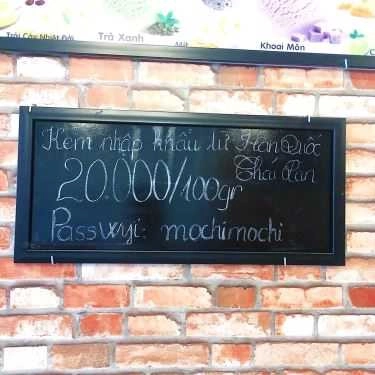 Trái Cây Nhiệt Đới Trà Xanh Mít Khoai Môn
Kem nhập khẩu từ Hàn Quốc
Thái Lan
20.000/100gr
Passwyi: mochimochi